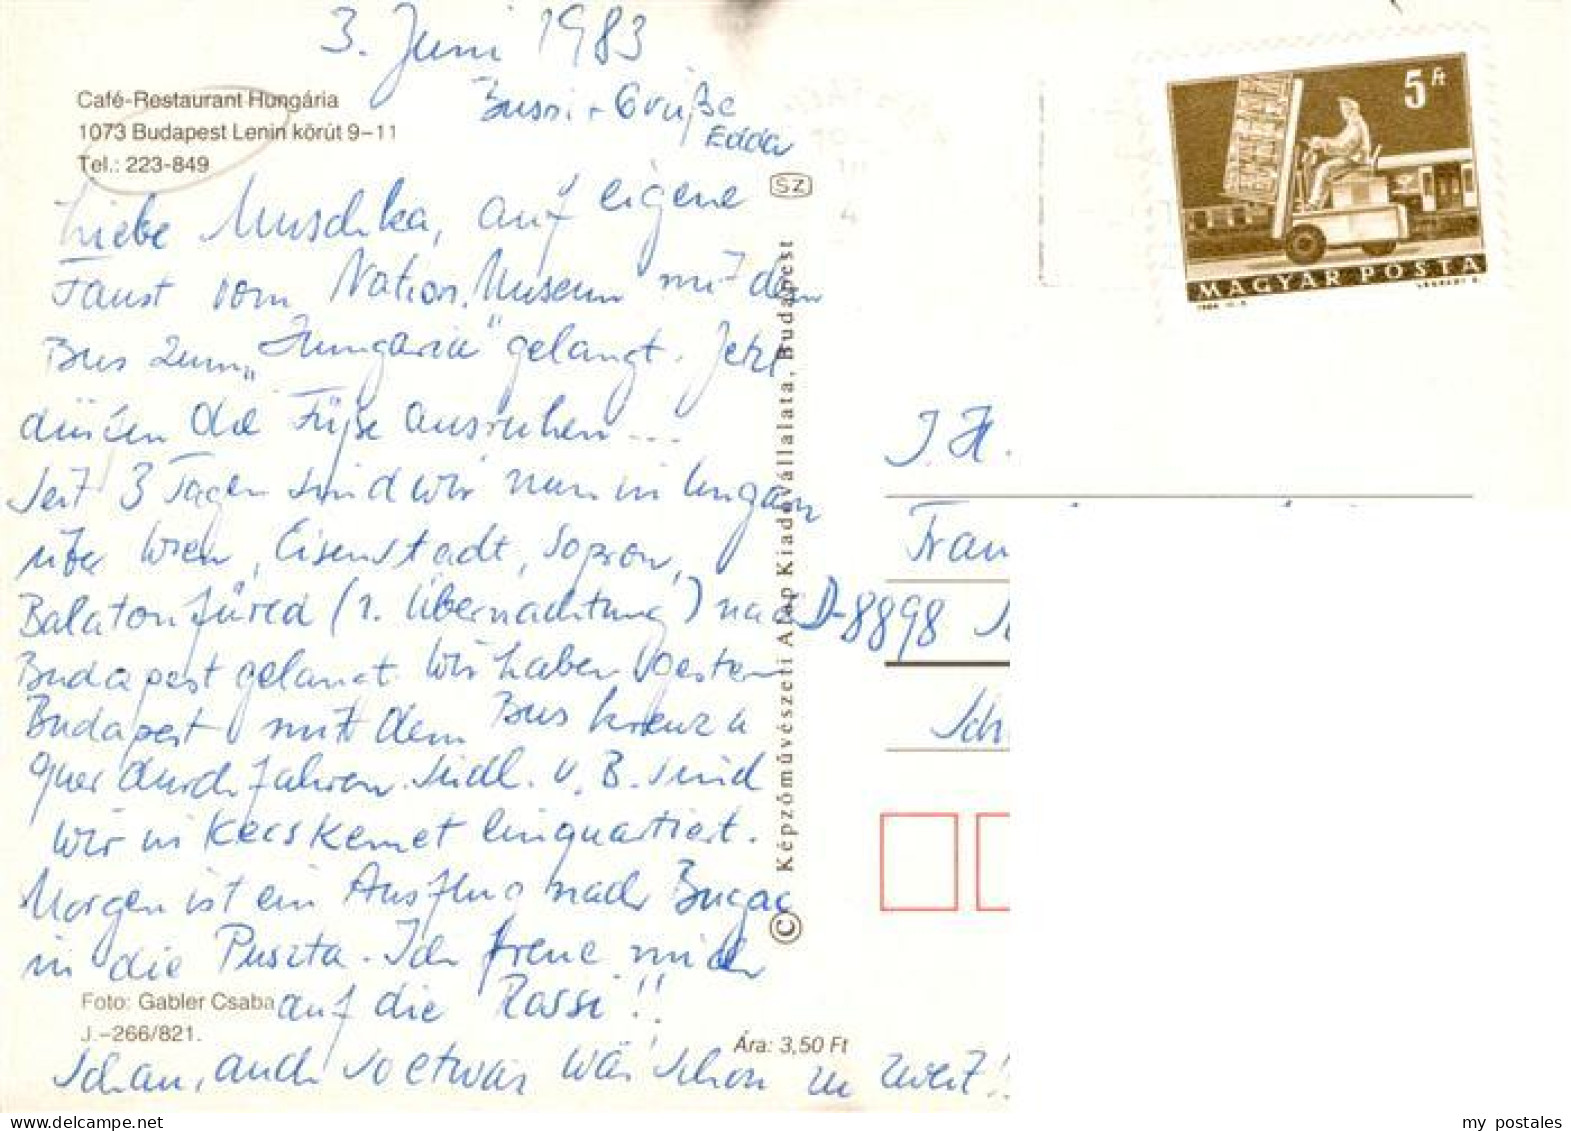 3. Juni 1983
Bussi + Grüße
Edda
Café-Restaurant Hungária
1073 Budapest Lenin körút 9–11
Tel.: 223-849
Liebe Muschka, auf eigene
Faust vom Nation. Museum mit dem
Bus zum „Hungaria" gelangt. Jetzt
dürfen die Füße ausruhen ...
Seit 3 Tagen sind wir nun in Ungarn
über Wien, Eisenstadt, Sopron,
Balatonfüred (1. Übernachtung) nach
Budapest gelangt. Wir haben gestern
Budapest mit dem Bus kreuz u
quer durchfahren. Südl. v. B. sind
wir in Kecskemet einquartiert.
Morgen ist ein Ausflug nach Bugac
in die Puszta. Ich freue mich
auf die Rosse!!
Foto: Gabler Csaba
J.–266/821.
Schau, auch so etwas wär' schon zu zweit!!
Ára: 3,50 Ft
SZ
© Képzőművészeti Alap Kiadóvállalata, Budapest
5 Ft
MAGYAR POSTA
J. H.
Frau
D-8898
Sch